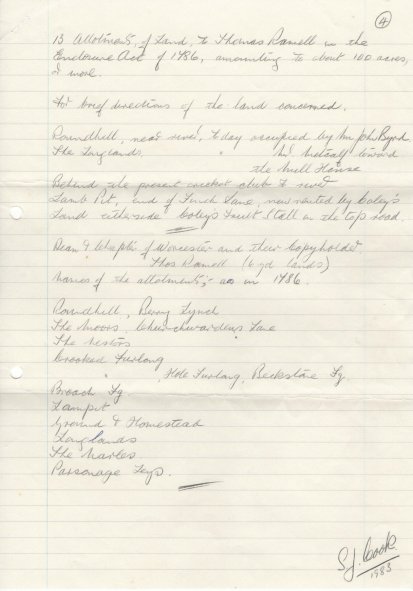 4
13 Allotments, of Land, to Thomas Ramell in the
Enclosure Act of 1786, amounting to about 100 acres,
& more.
For brief directions of the land concerned.
Roundhill, near river, today occupied by Mr John Byrd
The Longlands, " Mr Metcalf toward
the Mill House
Behind the present cricket club to river
Lamb Pit, end of Finch Lane, now rented by Coley's
Land eitherside Coley's Fruit Stall on the top road.
Dean & Chapter of Worcester and their Copyholder
Thos Ramell (6 yd lands)
names of the allotments, as in 1786.
Roundhill, Berry Lynch
The Moors, Churchwardens Lane
The Nestors
Crooked Furlong
Hole Furlong, Beckstone Fg
Broach Fg
Lampit
Ground & Homestead
Longlands
The Marles
Parsonage Leys.
S.J. Cook
1983